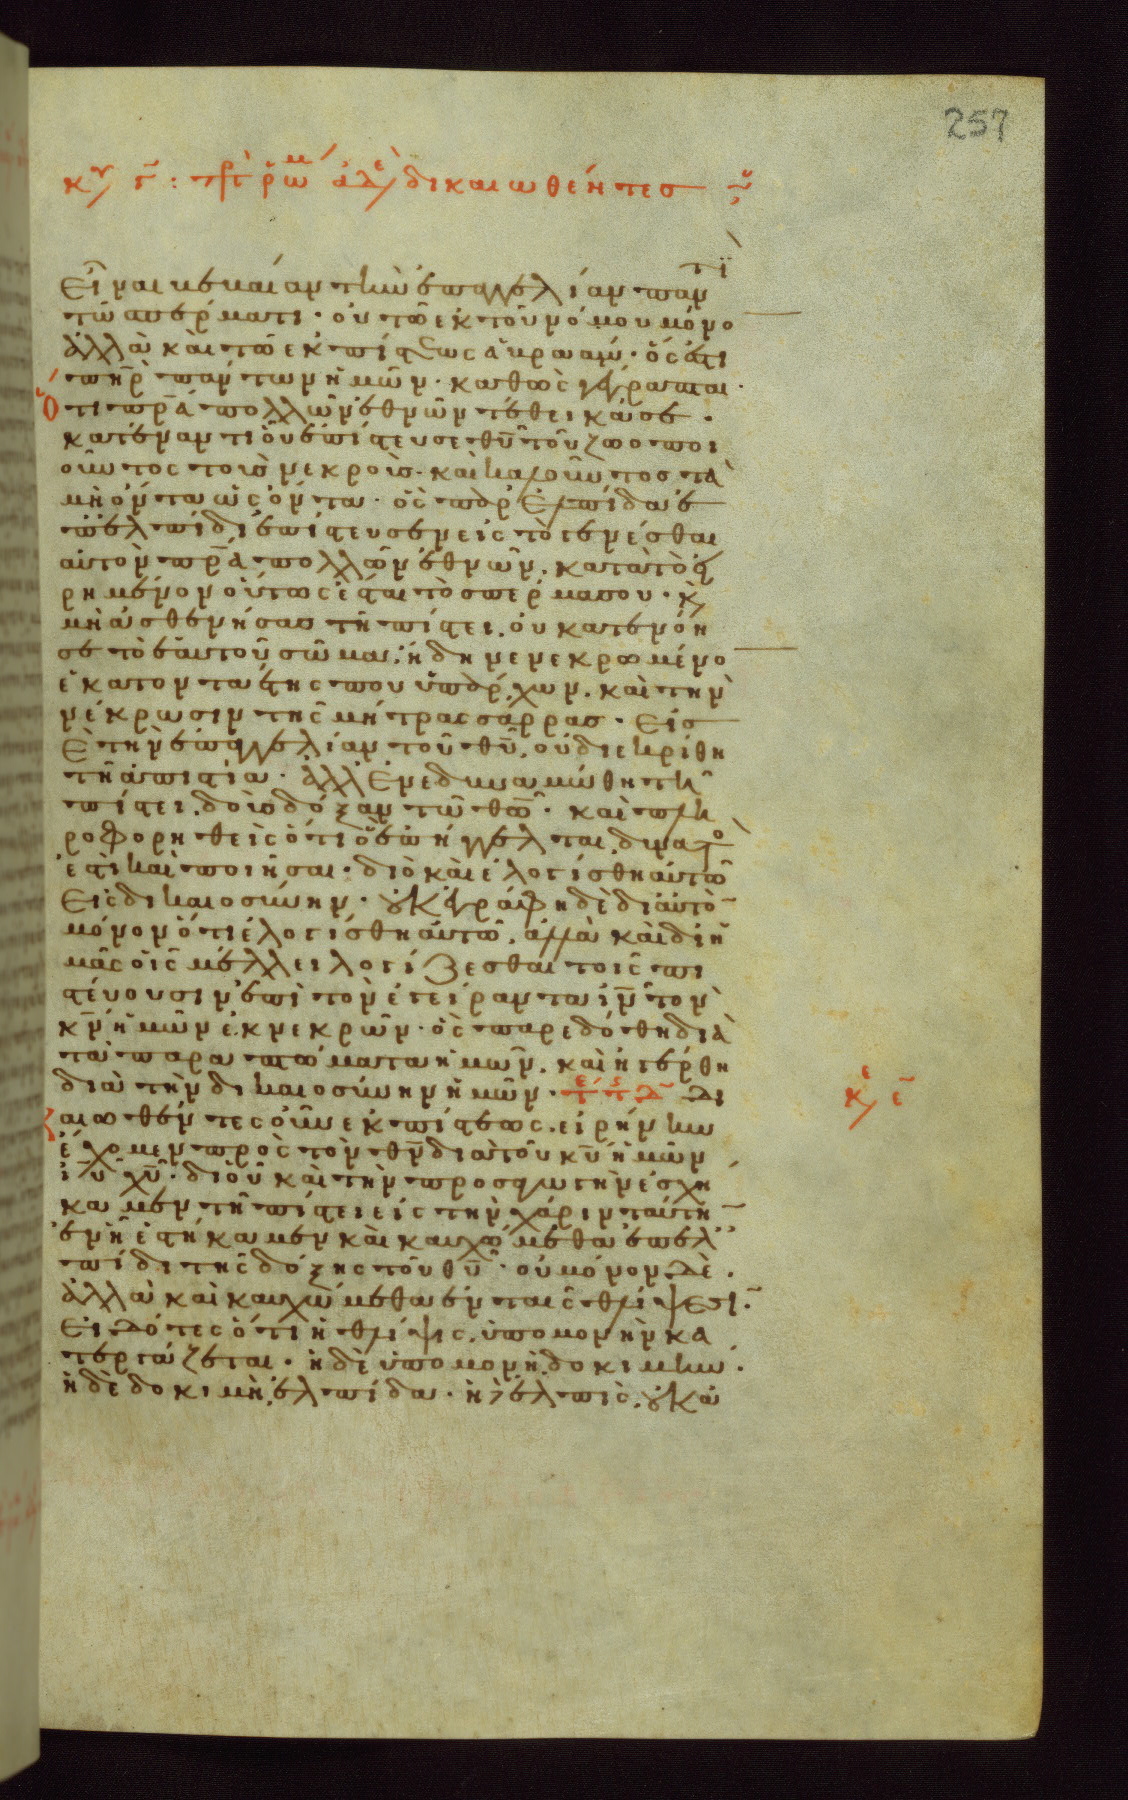 257
κυ γ : πρ ρωμ ἀδε δικαιωθέντες
εἶναι βεβαίαν τὴν ἐπαγγελίαν παντὶ
τῶ σπέρματι · οὐ τῶ ἐκ τοῦ νόμου μόνο
ἀλλὰ καὶ τῶ ἐκ πίστεως ἀβρααμ · ὅς ἐστι
πηρ πάντων ἡμῶν · καθὼς γέγραπται ·
ὅτι πρα πολλῶν ἐθνῶν τέθεικά σε ·
κατέναντι οὗ ἐπίστευσε θυ τοῦ ζωοποι
οῦντος τοὺς νεκροὺς · καὶ καλοῦντος τὰ
μὴ ὄντα ὡς ὄντα · ὃς παρ ἐλπίδα ἐ
π ἐλπίδι ἐπίστευσεν εἰς τὸ γενέσθαι
αὐτὸν πρα πολλῶν ἐθνῶν · κατὰ τὸ εἰ
ρημένον οὕτως ἔσται τὸ σπέρμα σου · κ
μὴ ἀσθενήσας τῆ πίστει · οὐ κατενόη
σε τὸ ἑαυτοῦ σῶμα · ἤδη νενεκρωμένο
ἑκατονταέτης που ὑπάρχων · καὶ τὴν
νέκρωσιν τῆς μήτρας σάρρας · εἰς
δὲ τὴν ἐπαγγελίαν τοῦ θυ οὐ διεκρίθη
τῆ ἀπιστία · ἀλλ ἐνεδυναμώθη τῆ
πίστει · δοὺς δόξαν τῶ θω · καὶ πλη
ροφορηθεὶς ὅτι ὃ ἐπήγγελται δυνατό
ἐστι καὶ ποιῆσαι · διὸ καὶ ἐλογίσθη αὐτῶ
εἰς δικαιοσύνην · οὐκ ἐγράφη δὲ δι αὐτὸ
μόνον ὅτι ἐλογίσθη αὐτῶ · ἀλλὰ καὶ δι ἡ
μᾶς οἷς μέλλει λογίζεσθαι τοῖς πι
στεύουσιν ἐπὶ τὸν ἐγείραντα ιν τὸν
κν ἡμῶν ἐκ νεκρῶν · ὃς παρεδόθη διὰ
τὰ παραπτώματα ἡμῶν · καὶ ἠγέρθη
διὰ τὴν δικαιοσύνην ἡμῶν · δι
κυ γ
καιωθέντες οὖν ἐκ πίστεως · εἰρήνην
ἔχομεν πρὸς τὸν θν διὰ τοῦ κυ ἡμῶν
ιυ χυ · δι οὗ καὶ τὴν προσαγωγὴν ἐσχή
καμεν τῆ πίστει εἰς τὴν χάριν ταύτη
ἐν ἧ ἑστήκαμεν καὶ καυχώμεθα ἐπ ἐλ
πίδι τῆς δόξης τοῦ θυ · οὐ μόνον δὲ ·
ἀλλὰ καὶ καυχώμεθα ἐν ταῖς θλίψεσι ·
εἰδότες ὅτι ἡ θλίψις · ὑπομονὴν κα
τεργάζεται · ἡ δὲ ὑπομονὴ δοκιμήν ·
ἡ δὲ δοκιμὴ · ἐλπίδα · ἡ δὲ ἐλπὶς · οὐ κα